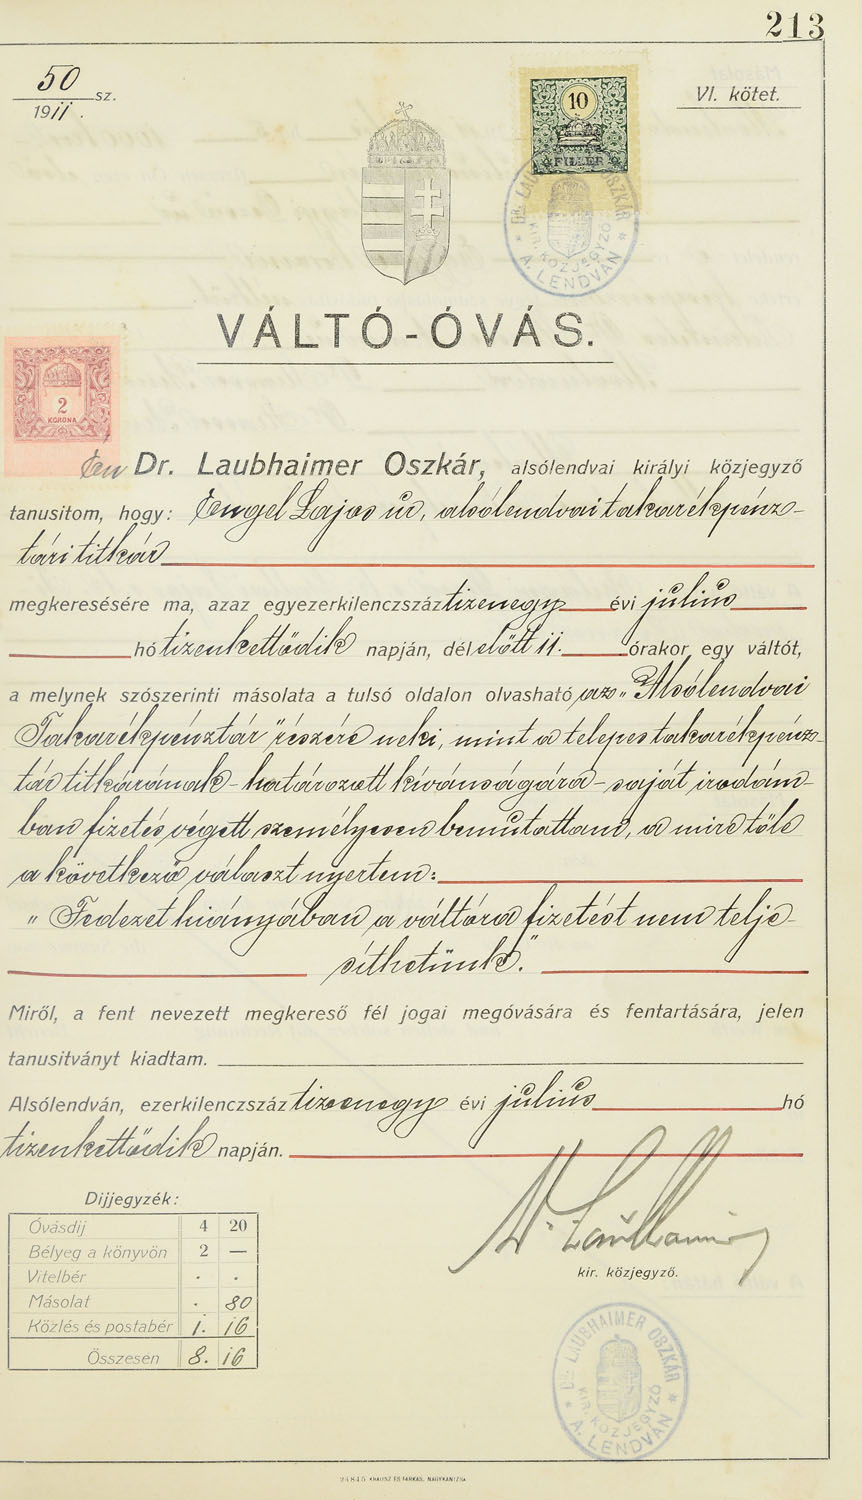 213
50 sz.
1911.
VI. kötet.
10
FILLÉR
DR. LAUBHAIMER OSZKÁR
KIR. KÖZJEGYZŐ
* A. LENDVÁN *
VÁLTÓ-ÓVÁS.
2
KORONA
Én Dr. Laubhaimer Oszkár, alsólendvai királyi közjegyző
tanusitom, hogy: Engel Lajos úr, alsólendvai takarékpénz-
tári titkár
megkeresésére ma, azaz egyezerkilenczszáz tizenegy évi julius
hó tizenkettődik napján, dél előtt 11. órakor egy váltót,
a melynek szószerinti másolata a tulsó oldalon olvasható az „Alsólendvai
Takarékpénztár" részére neki, mint a telepes takarékpénz-
tár titkárának - határozott kívánságára - saját irodám-
ban fizetés végett személyesen bemutattam, a mire tőle
a következő választ nyertem:
„ Fedezet hiányában a váltóra fizetést nem telje-
síthetünk."
Miről, a fent nevezett megkereső fél jogai megóvására és fentartására, jelen
tanusitványt kiadtam.
Alsólendván, ezerkilenczszáz tizenegy évi julius hó
tizenkettődik napján.
Dijjegyzék:
Óvásdij 4 20
Bélyeg a könyvön 2 —
Vitelbér . .
Másolat . 80
Közlés és postabér 1. 16
Összesen 8. 16
Dr. Laubhaimer
kir. közjegyző.
DR. LAUBHAIMER OSZKÁR
KIR. KÖZJEGYZŐ
* A. LENDVÁN *
KRAUSZ ÉS FARKAS, NAGYKANIZSA